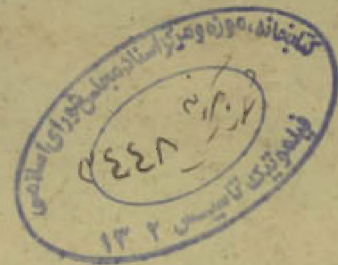 کتابخانه، موزه و مرکز اسناد مجلس شورای اسلامی
۲۴۴۸
فیلموتیک تاسیس ۱۳۰۲